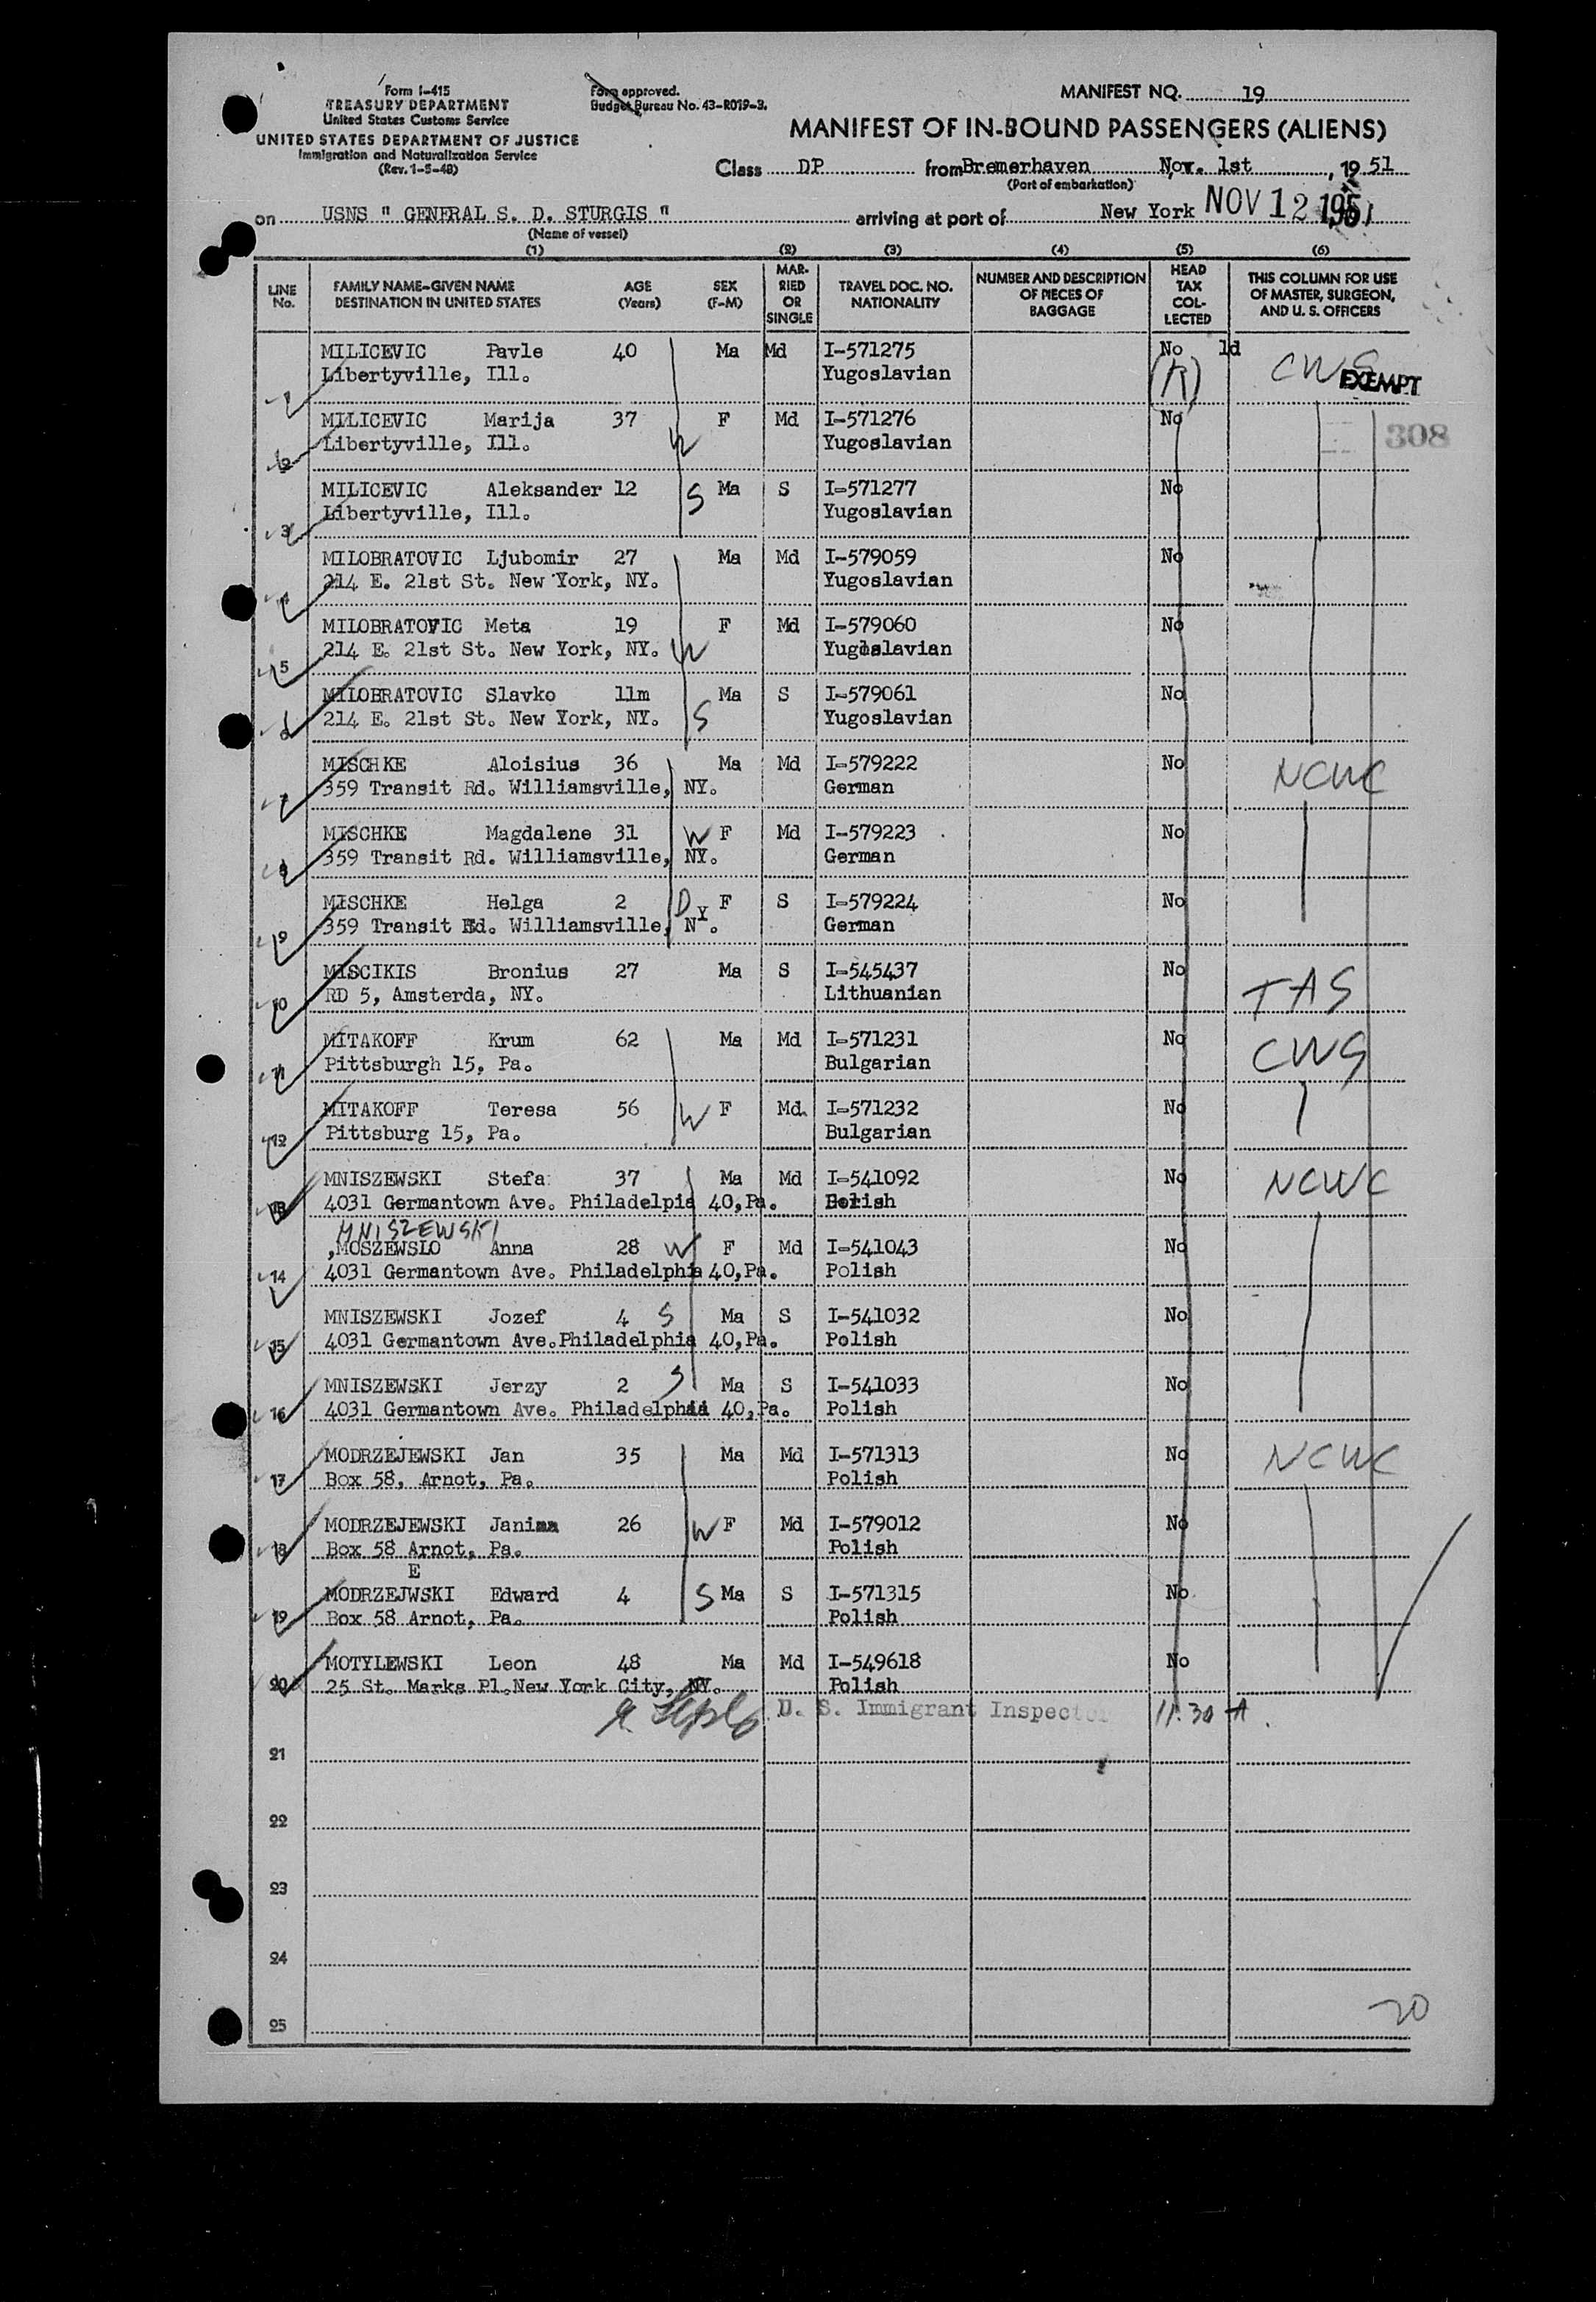 Form I-415
TREASURY DEPARTMENT
United States Customs Service
UNITED STATES DEPARTMENT OF JUSTICE
Immigration and Naturalization Service
(Rev. 1-5-48)
Form approved.
Budget Bureau No. 43-R019-3.
MANIFEST NO. 19
MANIFEST OF IN-BOUND PASSENGERS (ALIENS)
Class DP from Bremerhaven Nov. 1st, 1951
(Port of embarkation)
on USNS " GENERAL S. D. STURGIS " arriving at port of New York NOV 12 1951
(Name of vessel)
(1) (2) (3) (4) (5) (6)
LINE No. FAMILY NAME-GIVEN NAME DESTINATION IN UNITED STATES AGE (Years) SEX (F-M) MARRIED OR SINGLE TRAVEL DOC. NO. NATIONALITY NUMBER AND DESCRIPTION OF PIECES OF BAGGAGE HEAD TAX COLLECTED THIS COLUMN FOR USE OF MASTER, SURGEON, AND U. S. OFFICERS
1 MILICEVIC Pavle 40 Ma Md I-571275 No ld CWS EXEMPT
Libertyville, Ill. Yugoslavian (R)
2 MILICEVIC Marija 37 F Md I-571276 No 308
Libertyville, Ill. W Yugoslavian
3 MILICEVIC Aleksander 12 S Ma S I-571277 No
Libertyville, Ill. Yugoslavian
4 MILOBRATOVIC Ljubomir 27 Ma Md I-579059 No
214 E. 21st St. New York, NY. Yugoslavian
5 MILOBRATOVIC Meta 19 F Md I-579060 No
214 E. 21st St. New York, NY. W Yugoslavian
6 MILOBRATOVIC Slavko 11m Ma S I-579061 No
214 E. 21st St. New York, NY. S Yugoslavian
7 MISCHKE Aloisius 36 Ma Md I-579222 No NCWC
359 Transit Rd. Williamsville, NY. German
8 MISCHKE Magdalene 31 W F Md I-579223 No
359 Transit Rd. Williamsville, NY. German
9 MISCHKE Helga 2 D F S I-579224 No
359 Transit Rd. Williamsville, NY. German
10 MISCIKIS Bronius 27 Ma S I-545437 No TAS
RD 5, Amsterda, NY. Lithuanian
11 MITAKOFF Krum 62 Ma Md I-571231 No CWS
Pittsburgh 15, Pa. Bulgarian
12 MITAKOFF Teresa 56 W F Md. I-571232 No
Pittsburg 15, Pa. Bulgarian
13 MNISZEWSKI Stefa 37 Ma Md I-541092 No NCWC
4031 Germantown Ave. Philadelpia 40,Pa. Polish
MNISZEWSKI
14 MOSZEWSLO Anna 28 W F Md I-541043 No
4031 Germantown Ave. Philadelphia 40,Pa. Polish
15 MNISZEWSKI Jozef 4 S Ma S I-541032 No
4031 Germantown Ave.Philadelphia 40,Pa. Polish
16 MNISZEWSKI Jerzy 2 S Ma S I-541033 No
4031 Germantown Ave. Philadelphia 40,Pa. Polish
17 MODRZEJEWSKI Jan 35 Ma Md I-571313 No NCWC
Box 58, Arnot, Pa. Polish
18 MODRZEJEWSKI Janina 26 W F Md I-579012 No
Box 58 Arnot, Pa. Polish
E
19 MODRZEJWSKI Edward 4 S Ma S I-571315 No
Box 58 Arnot, Pa. Polish
20 MOTYLEWSKI Leon 48 Ma Md I-549618 No
25 St. Marks Pl.New York City, NY. Polish
U. S. Immigrant Inspector 11.30 A.
21
22
23
24
25
20